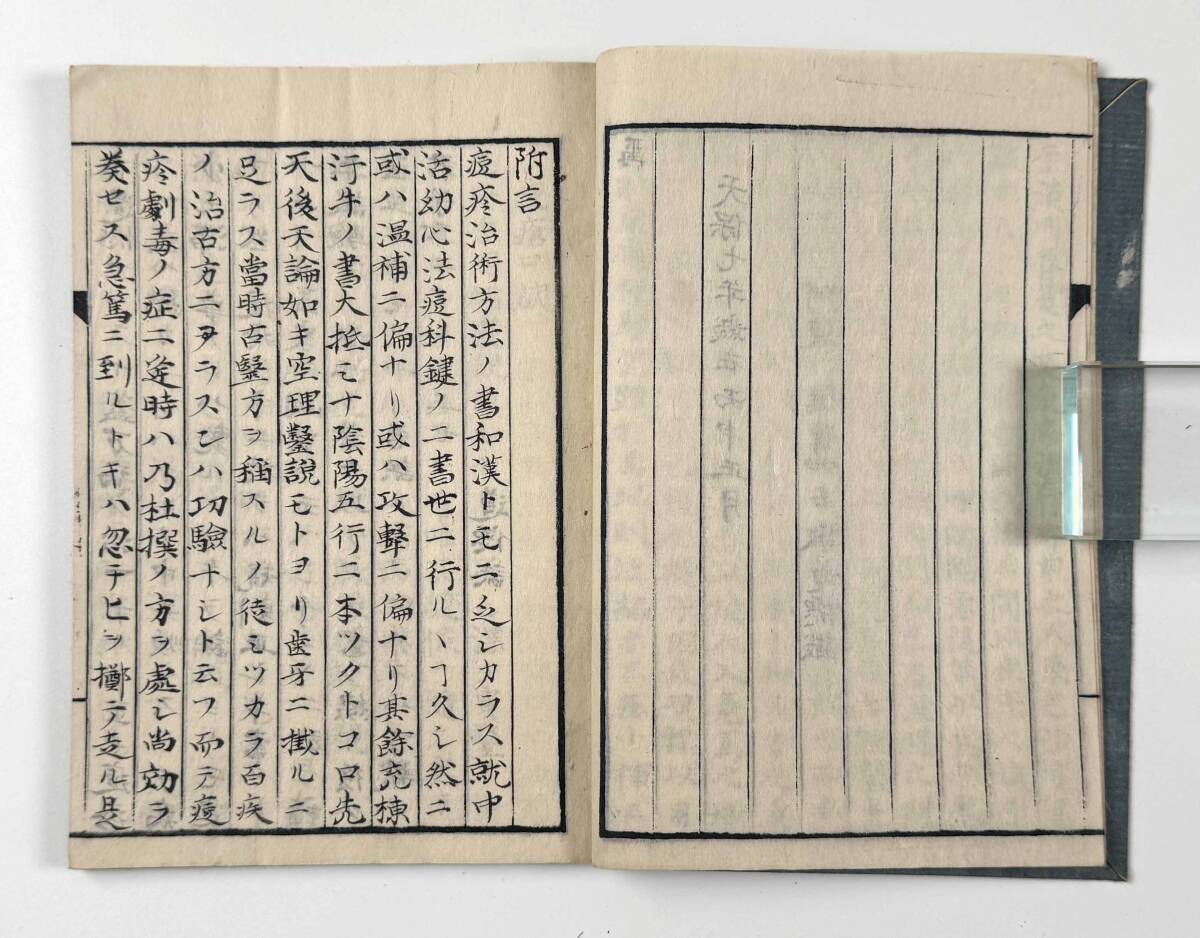 附言
痘疹治術方法ノ書和漢トモニ乏シカラス就中
活幼心法痘科鍵ノ二書世ニ行ルヽヿ久シ然ニ
或ハ温補ニ偏ナリ或ハ攻擊ニ偏ナリ其餘充棟
汗牛ノ書大抵ミナ陰陽五行ニ本ツクトコロ先
天後天論如キ空理鑿説モトヨリ歯牙ニ掛ルニ
足ラス當時古醫方ヲ稱スルノ徒ミツカラ百疾
ノ治古方ニアラスンハ功驗ナシト云フ而テ痘
疹劇毒ノ症ニ逆時ハ乃杜撰ノ方ヲ處シ尚効ヲ
奏セス急篤ニ到ルトキハ忽チヒヲ擲テ走ル是
天保七年 正月